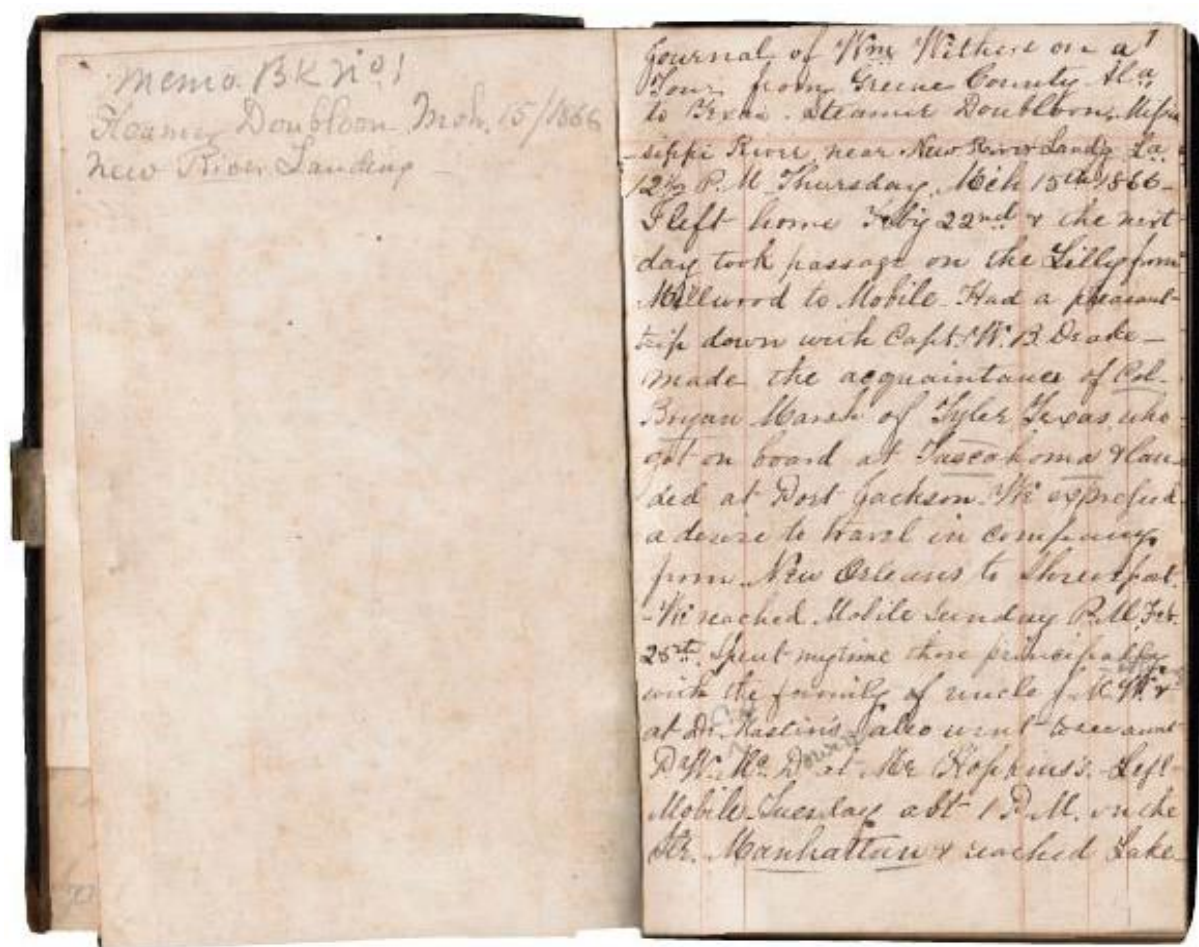 Memo. BK No. 1
Steamer Doubloon Mch. 15/1866
New River Landing -
1
Journal of Wm Withers on a
Tour from Greene County Ala
to Texas. Steamer Doubloon, Missis
-sippi River near New River Land'g La
12½ P.M. Thursday, Mch 15th 1866-
I left home Feb'y 22nd & the next
day took passage on the Lilly from
Millwood to Mobile. Had a pleasant
trip down with Capt. W. B. Drake -
made the acquaintance of Col.
Bryan Marsh of Tyler Texas, who
got on board at Tuscahoma & lan-
ded at Port Jackson. We expressed
a desire to travel in company
from New Orleans to Shreveport.
-We reached Mobile Sunday P.M. Feb.
25th. Spent my time there principally
with the family of uncle J. M. W. &
at Dr. also went to see aunt
Mc Dowell at Mr Hopkins's. Left
Mobile Tuesday abt 1 P.M. on the
Str. Manhattan & reached Lake